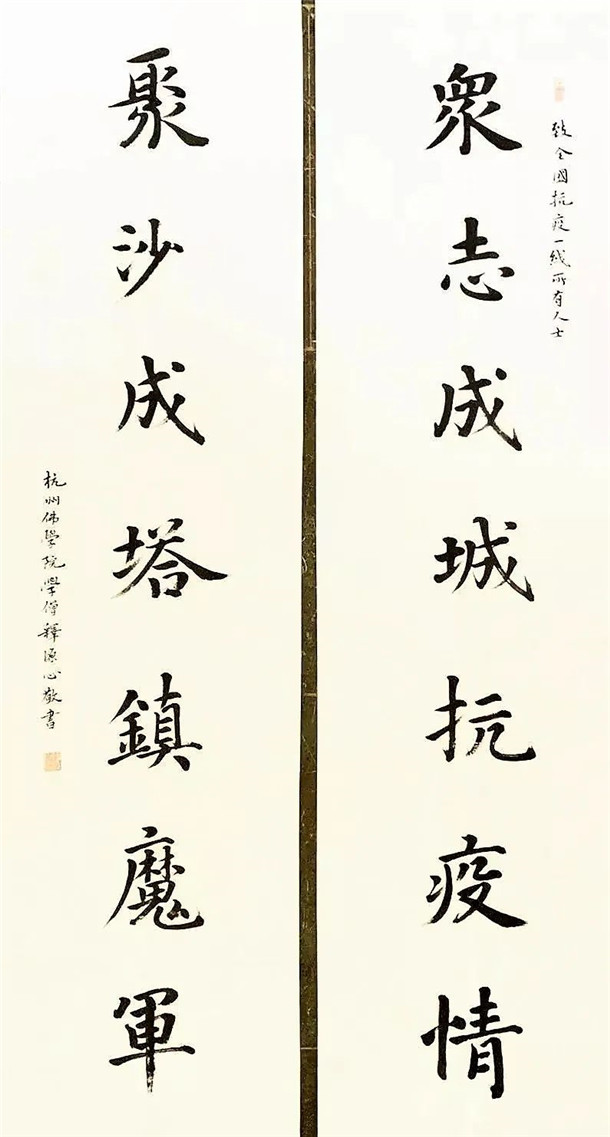 致全國抗疫一线所有人士
衆志成城抗疫情
聚沙成塔鎮魔軍
杭州佛學院學僧釋源心敬書